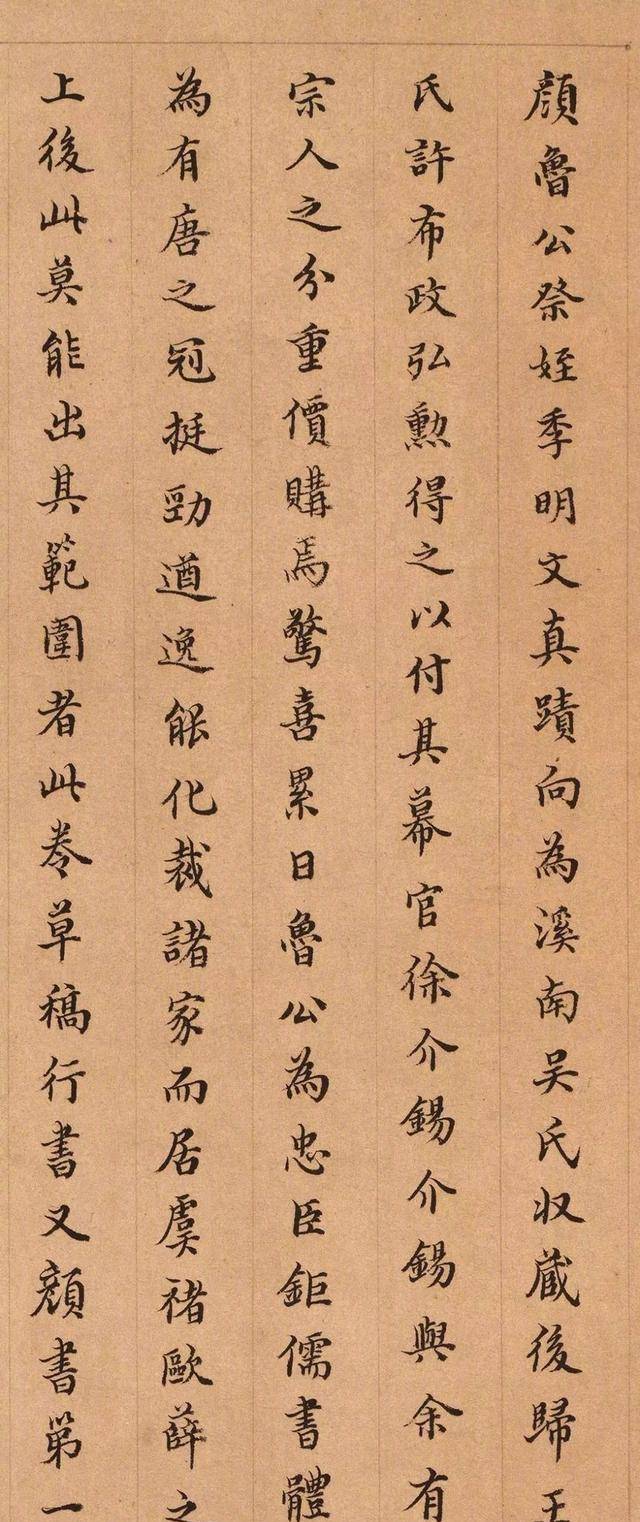 顏魯公祭姪季明文真蹟向為溪南吴氏収蔵後歸王
氏許布政弘勲得之以付其幕官徐介錫介錫與余有
宗人之分重價購焉驚喜累日魯公為忠臣鉅儒書體
為有唐之冠挺勁遒逸能化裁諸家而居虞褚歐薛之
上後此莫能出其範圍者此卷草稿行書又顏書第一